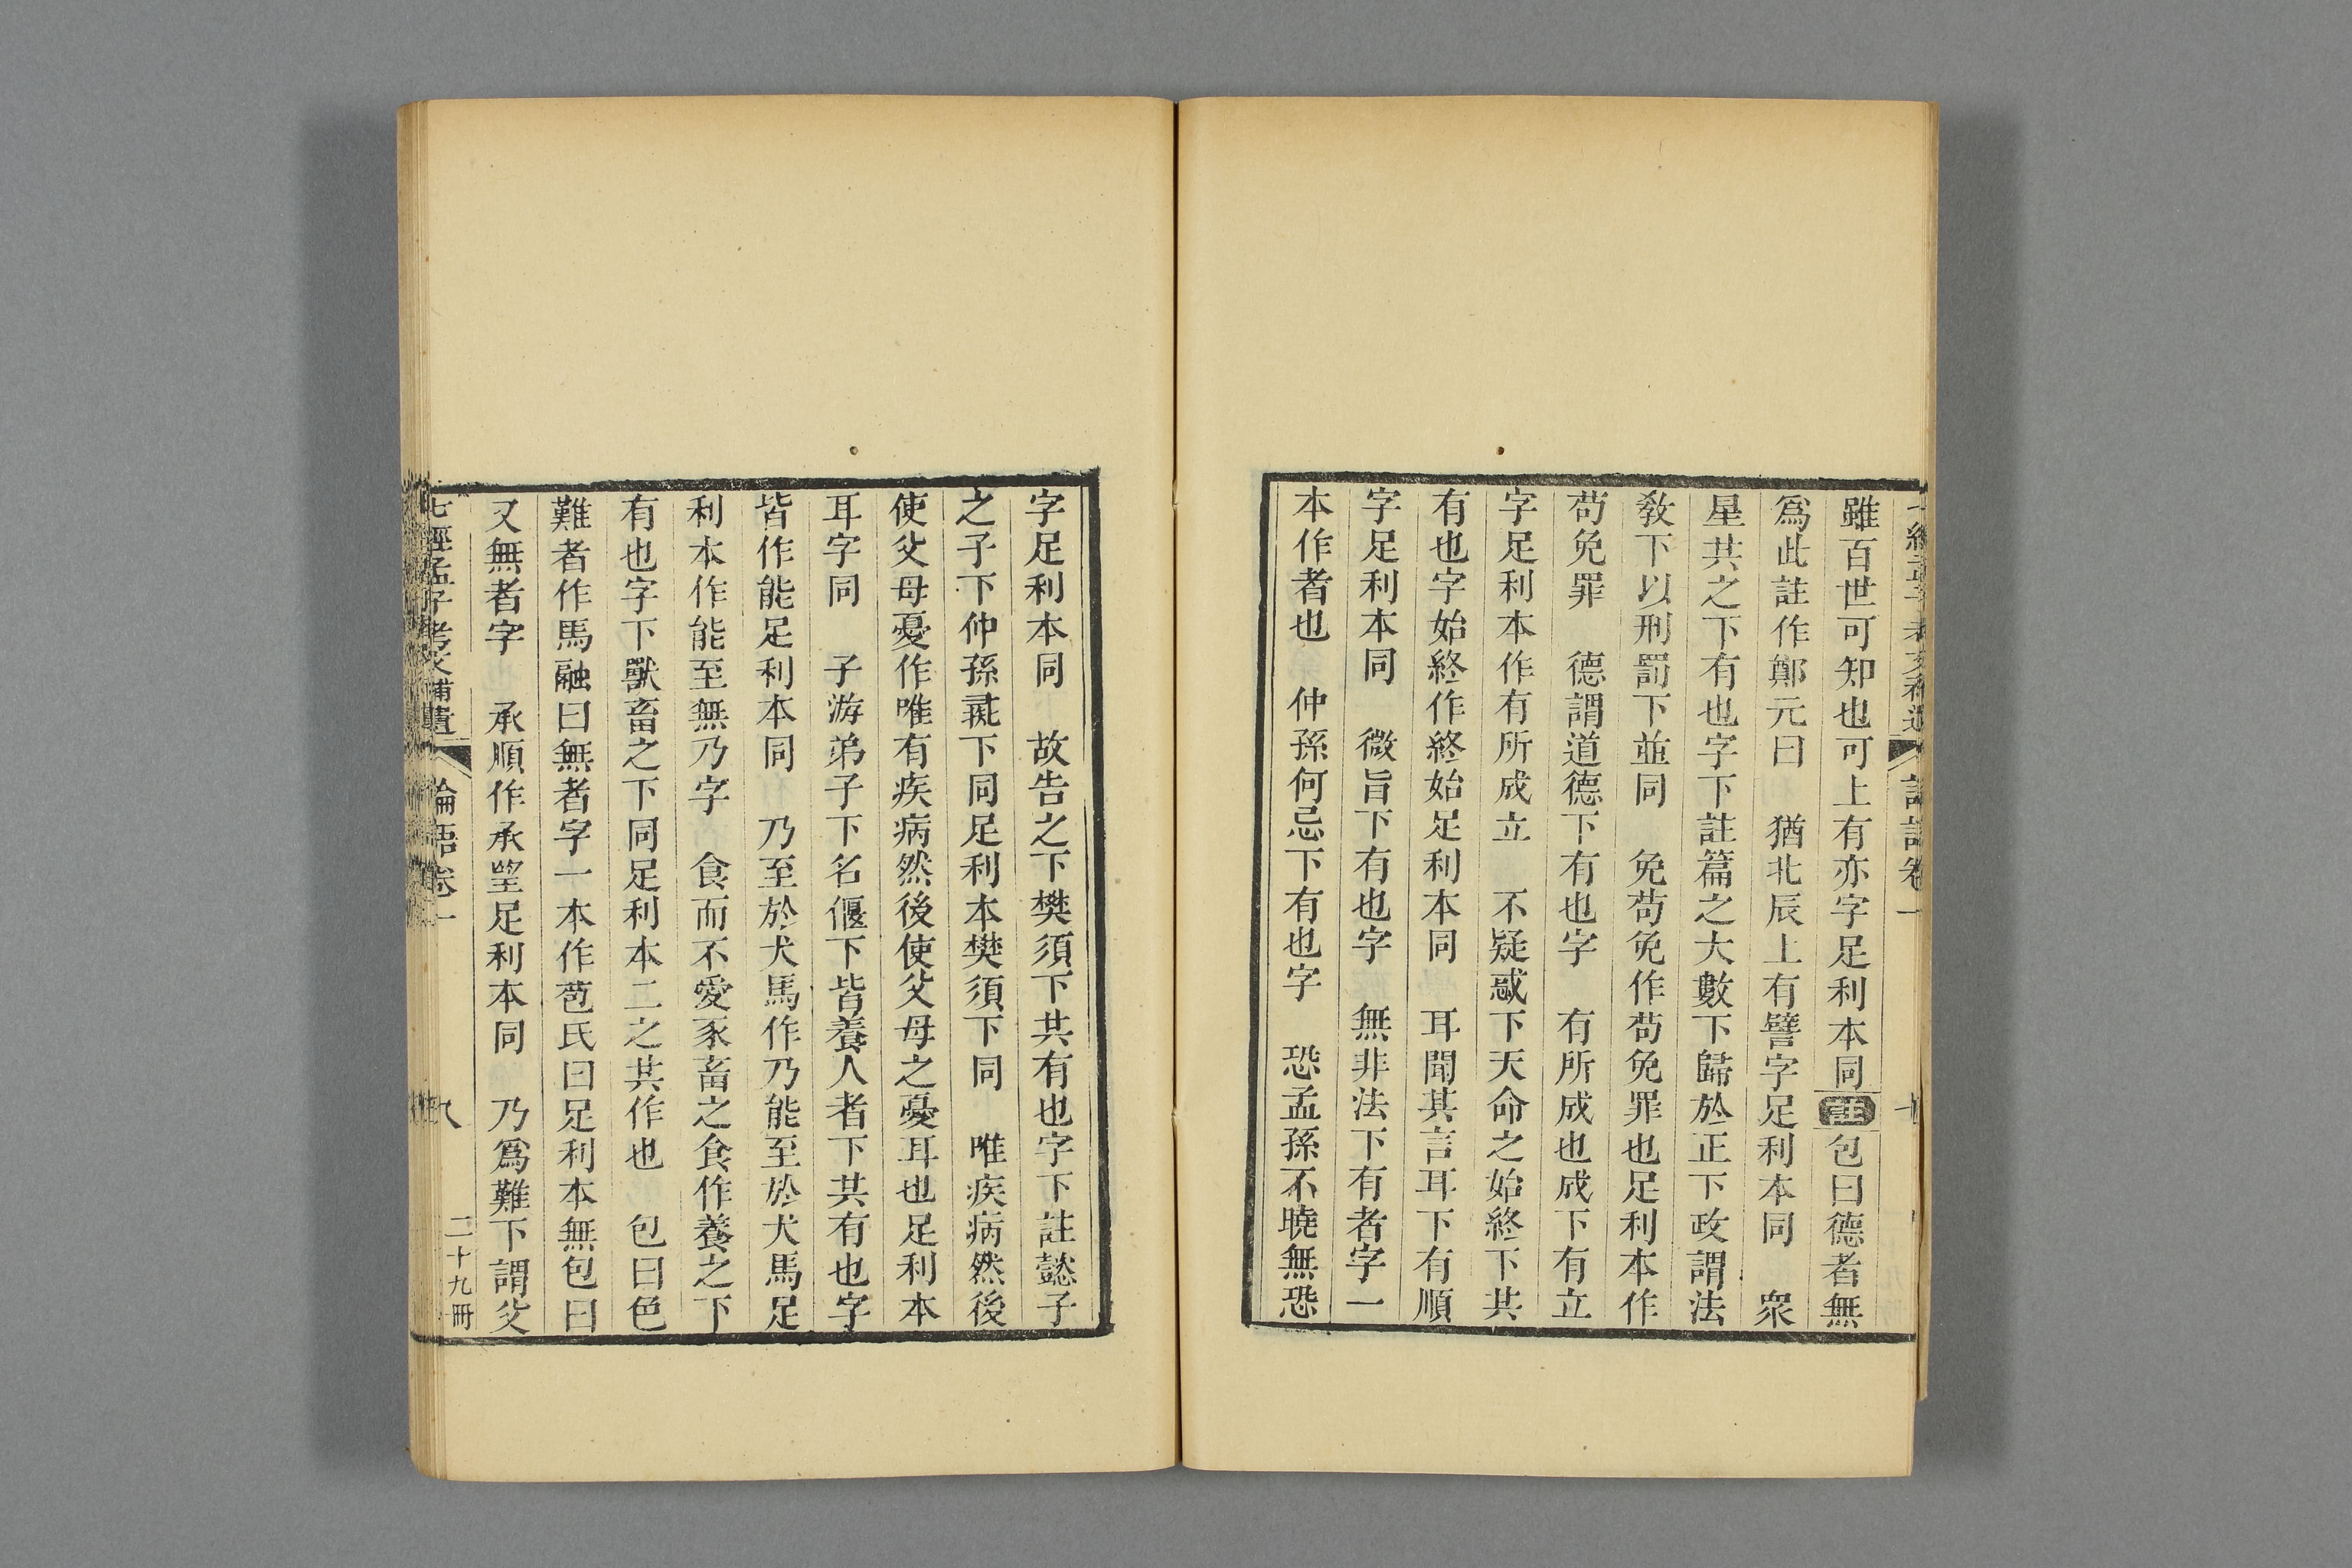 雖百世可知也可上有亦字足利本同註包曰德者無
爲此註作鄭元曰　猶北辰上有譬字足利本同　衆
星共之下有也字下註篇之大數下歸於正下政謂法
敎下以刑罰下並同　免苟免作苟免罪也足利本作
苟免罪　德謂道德下有也字　有所成也成下有立
字足利本作有所成立　不疑惑下天命之始終下共
有也字始終作終始足利本同　耳聞其言耳下有順
字足利本同　微旨下有也字　無非法下有者字一
本作者也　仲孫何忌下有也字　恐孟孫不曉無恐
字足利本同　故告之下樊須下共有也字下註懿子
之子下仲孫彘下同足利本樊須下同　唯疾病然後
使父母憂作唯有疾病然後使父母之憂耳也足利本
耳字同　子游弟子下名偃下皆養人者下共有也字
皆作能足利本同　乃至於犬馬作乃能至於犬馬足
利本作能至無乃字　食而不愛豕畜之食作養之下
有也字下獸畜之下同足利本二之共作也　包曰色
難者作馬融曰無者字一本作苞氏曰足利本無包曰
又無者字　承順作承望足利本同　乃爲難下謂父
七經孟子考文補遺　論語卷一　八　二十九冊